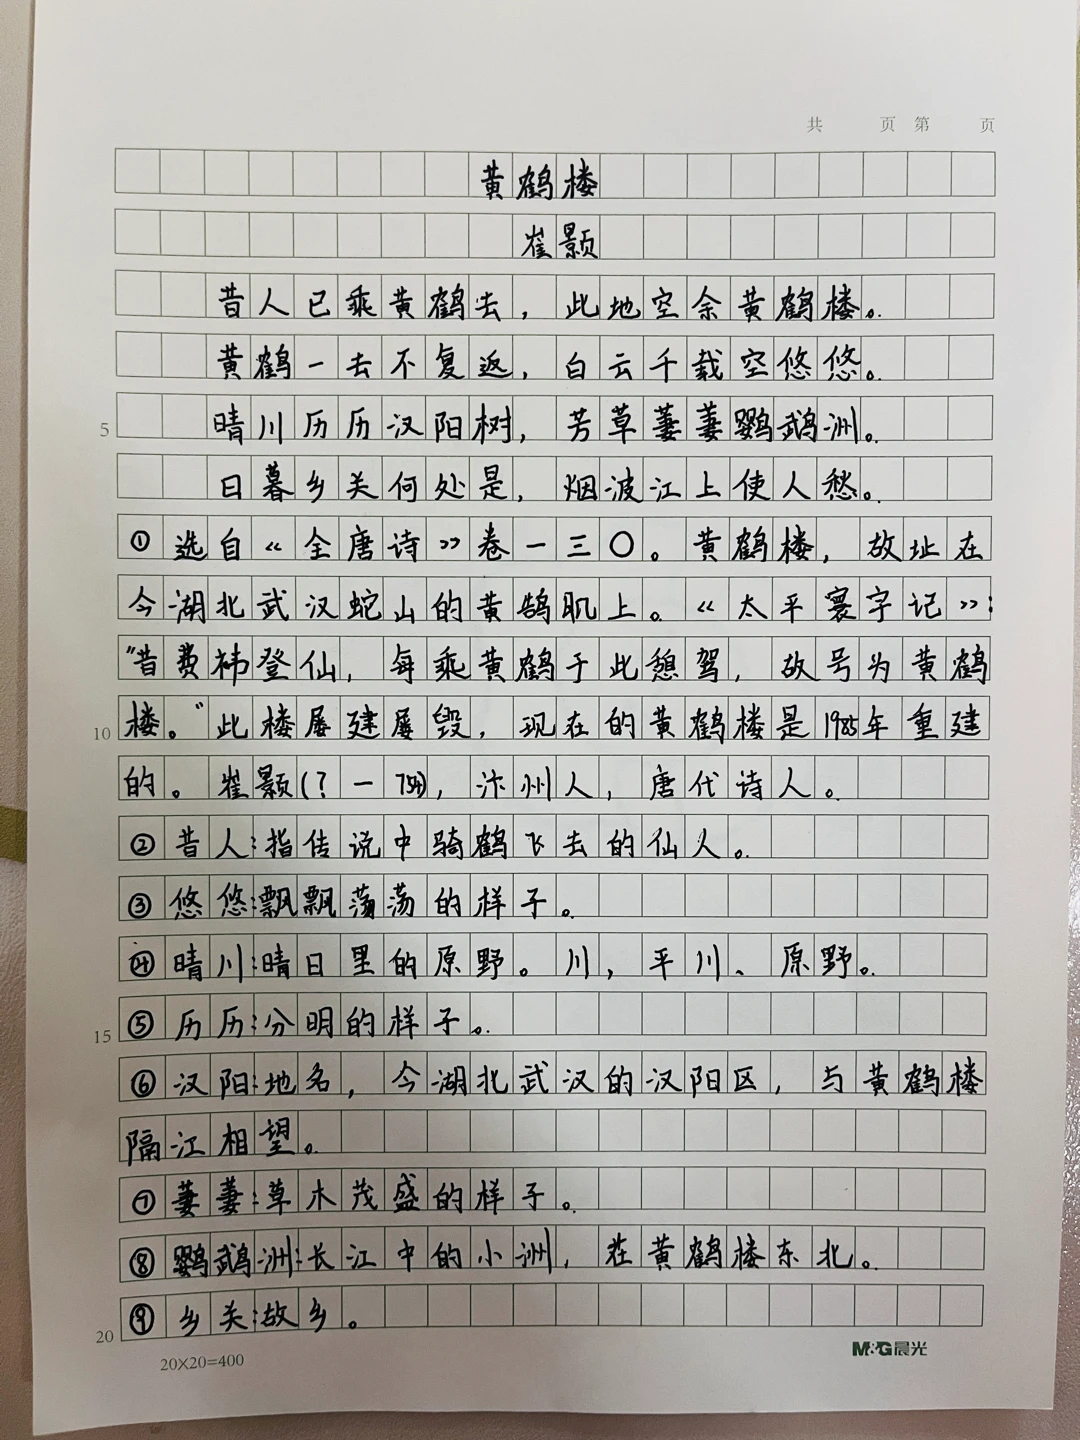 共 页 第 页
黄鹤楼
崔颢
昔人已乘黄鹤去，此地空余黄鹤楼。
黄鹤一去不复返，白云千载空悠悠。
5 晴川历历汉阳树，芳草萋萋鹦鹉洲。
日暮乡关何处是，烟波江上使人愁。
①选自《全唐诗》卷一三〇。黄鹤楼，故址在
今湖北武汉蛇山的黄鹄矶上。《太平寰宇记》：
“昔费祎登仙，每乘黄鹤于此憩驾，故号为黄鹤
10 楼。”此楼屡建屡毁，现在的黄鹤楼是1985年重建
的。崔颢(？—754)，汴州人，唐代诗人。
②昔人：指传说中骑鹤飞去的仙人。
③悠悠：飘飘荡荡的样子。
④晴川：晴日里的原野。川，平川、原野。
15 ⑤历历：分明的样子。
⑥汉阳：地名，今湖北武汉的汉阳区，与黄鹤楼
隔江相望。
⑦萋萋：草木茂盛的样子。
⑧鹦鹉洲：长江中的小洲，在黄鹤楼东北。
20 ⑨乡关：故乡。
20×20=400 M&G晨光